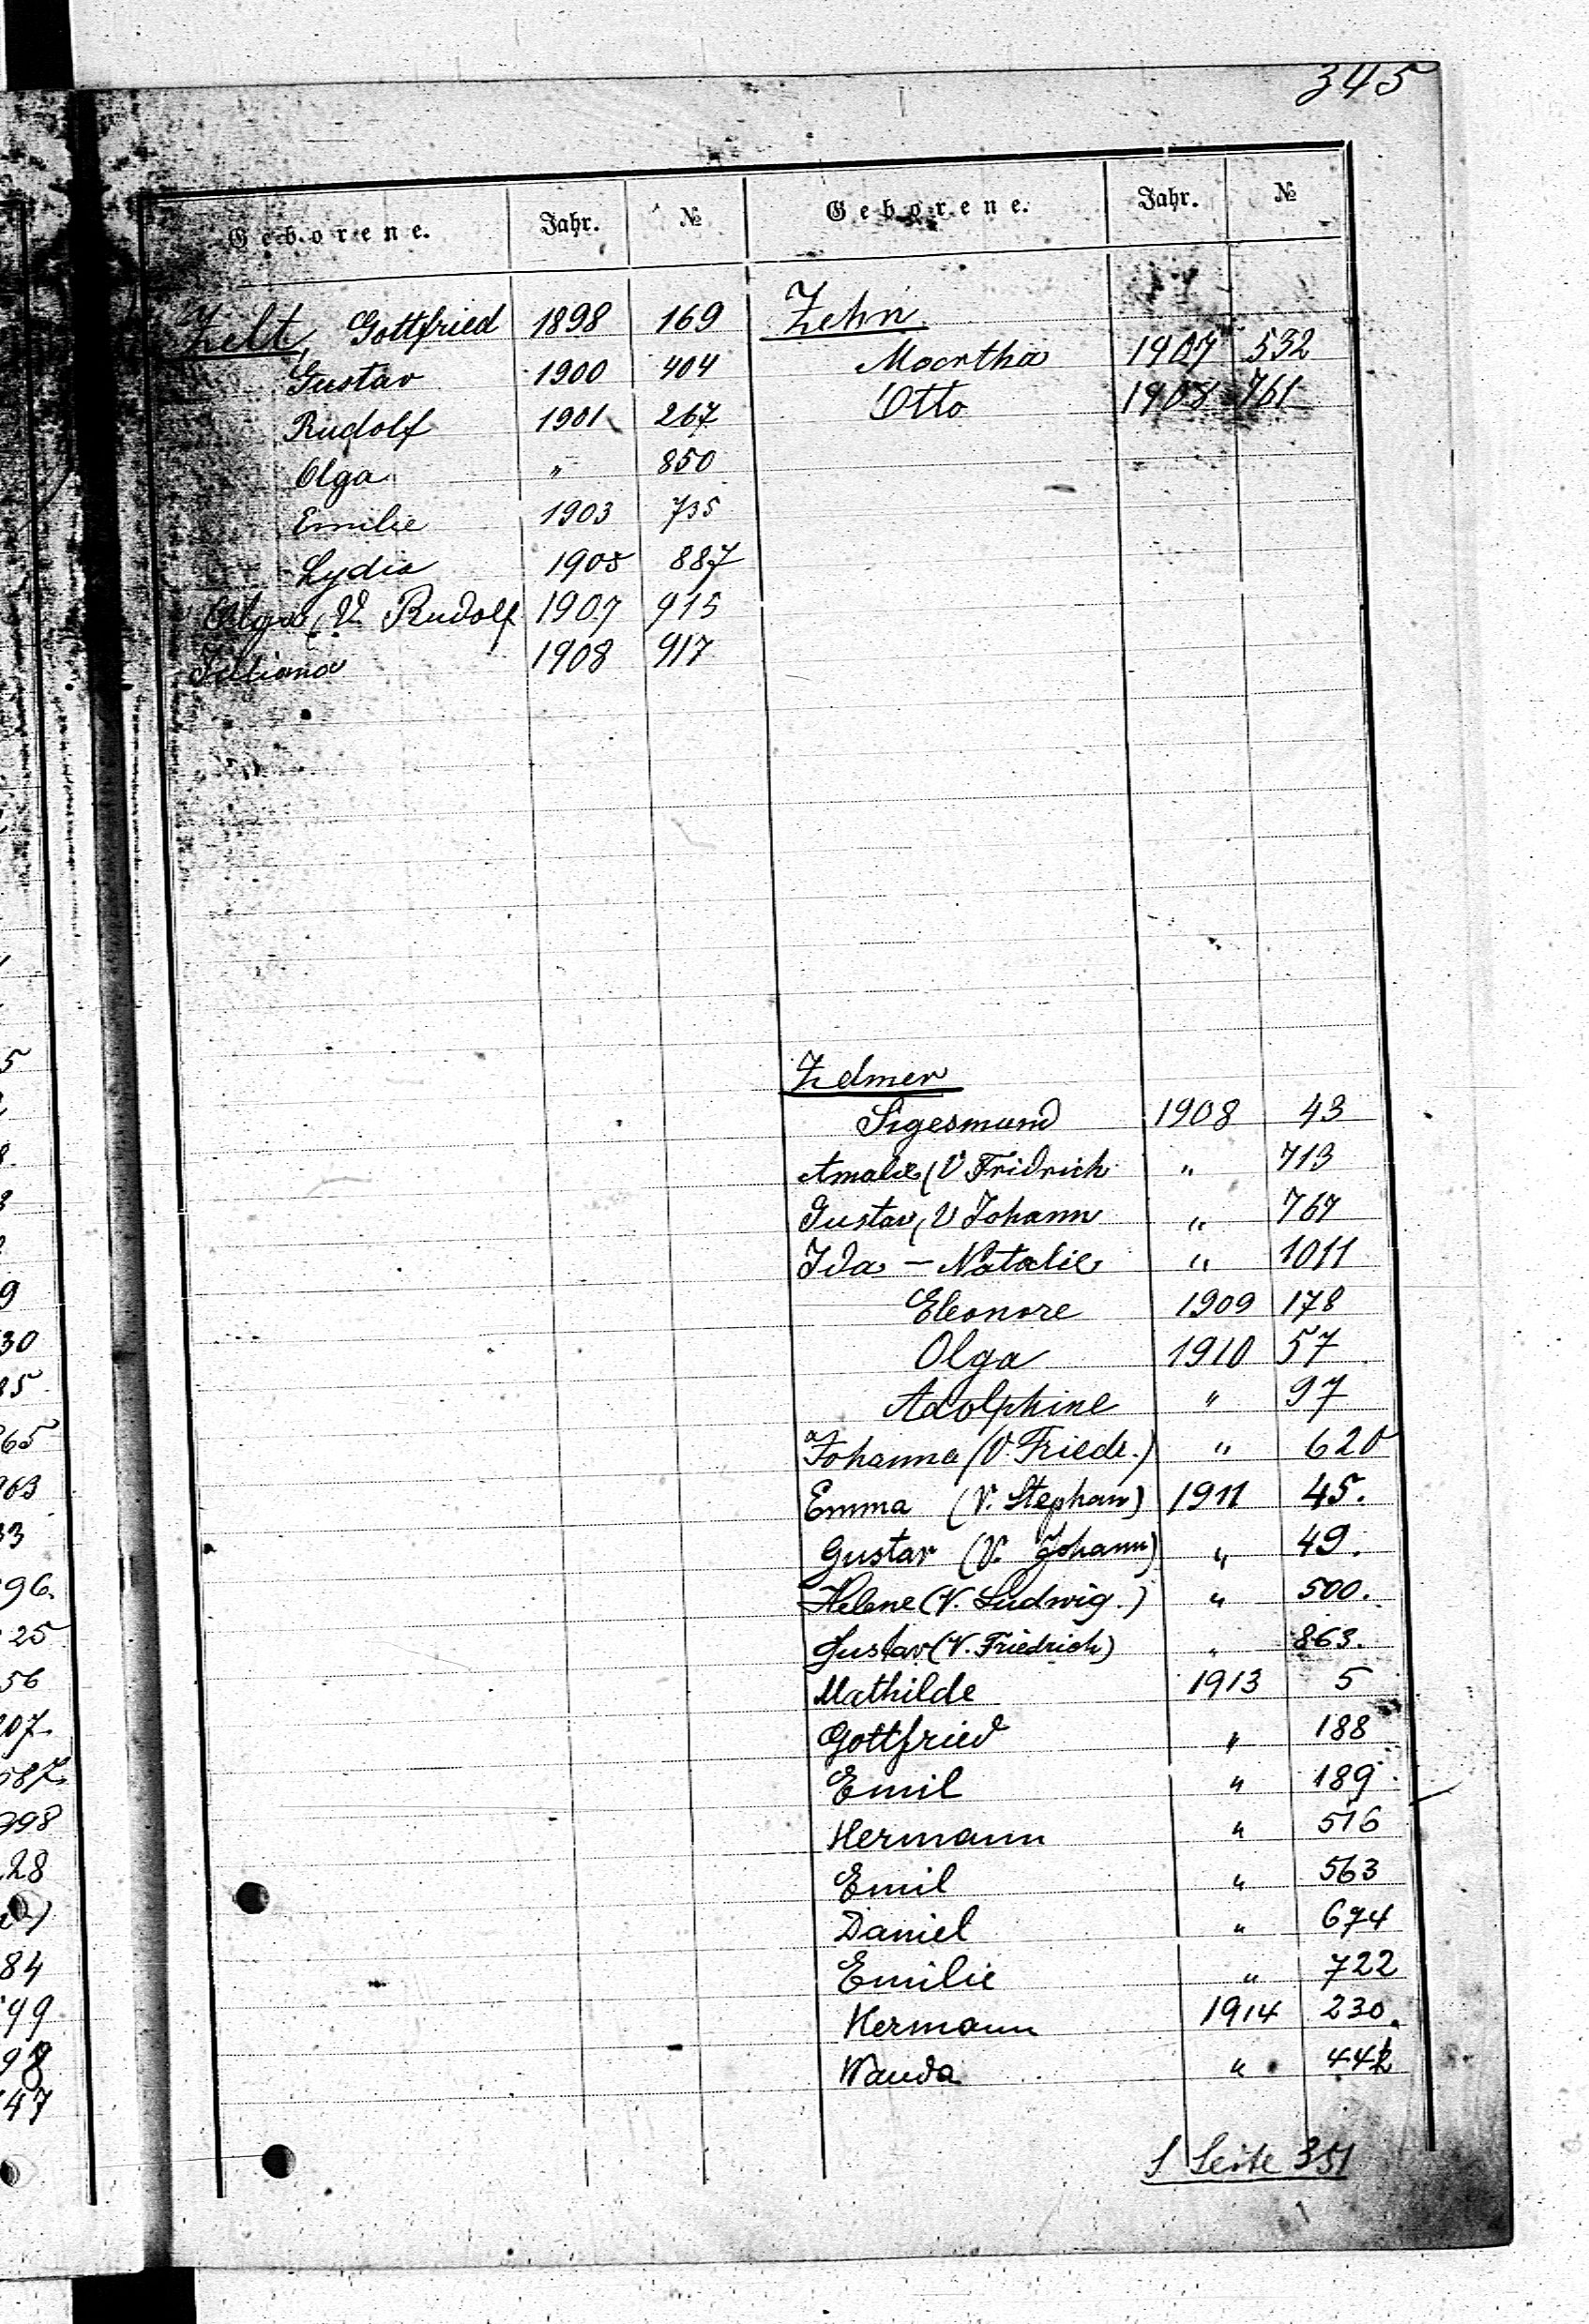 345
Geborene. Jahr. №
Zelt, Gottfried 1898 169
Gustav 1900 404
Rudolf 1901 267
Olga " 850
Emilie 1903 735
Lydia 1905 887
Olga (V. Rudolf 1907 915
Juliana 1908 917
Geborene. Jahr. №
Zehn
Martha 1907 532
Otto 1908 761
Zelmer
Sigesmund 1908 43
Amalie (V Fridrich " 713
Gustav (V Johann " 767
Ida - Natalie " 1011
Eleonore 1909 178
Olga 1910 57
Adolphine " 97
Johanna (V. Friedr.) " 620
Emma (V. Stephan) 1911 45.
Gustav (V. Johann) " 49.
Helene (V. Ludwig.) " 500.
Gustav (V. Friedrich) " 863.
Mathilde 1913 5
Gottfried " 188
Emil " 189
Hermann " 516
Emil " 563
Daniel " 674
Emilie " 722
Hermann 1914 230.
Wanda " 442
S Seite 351
5
9
30
85
65
903
33
96.
25
56
207.
087.
998
28
84
99
98
47